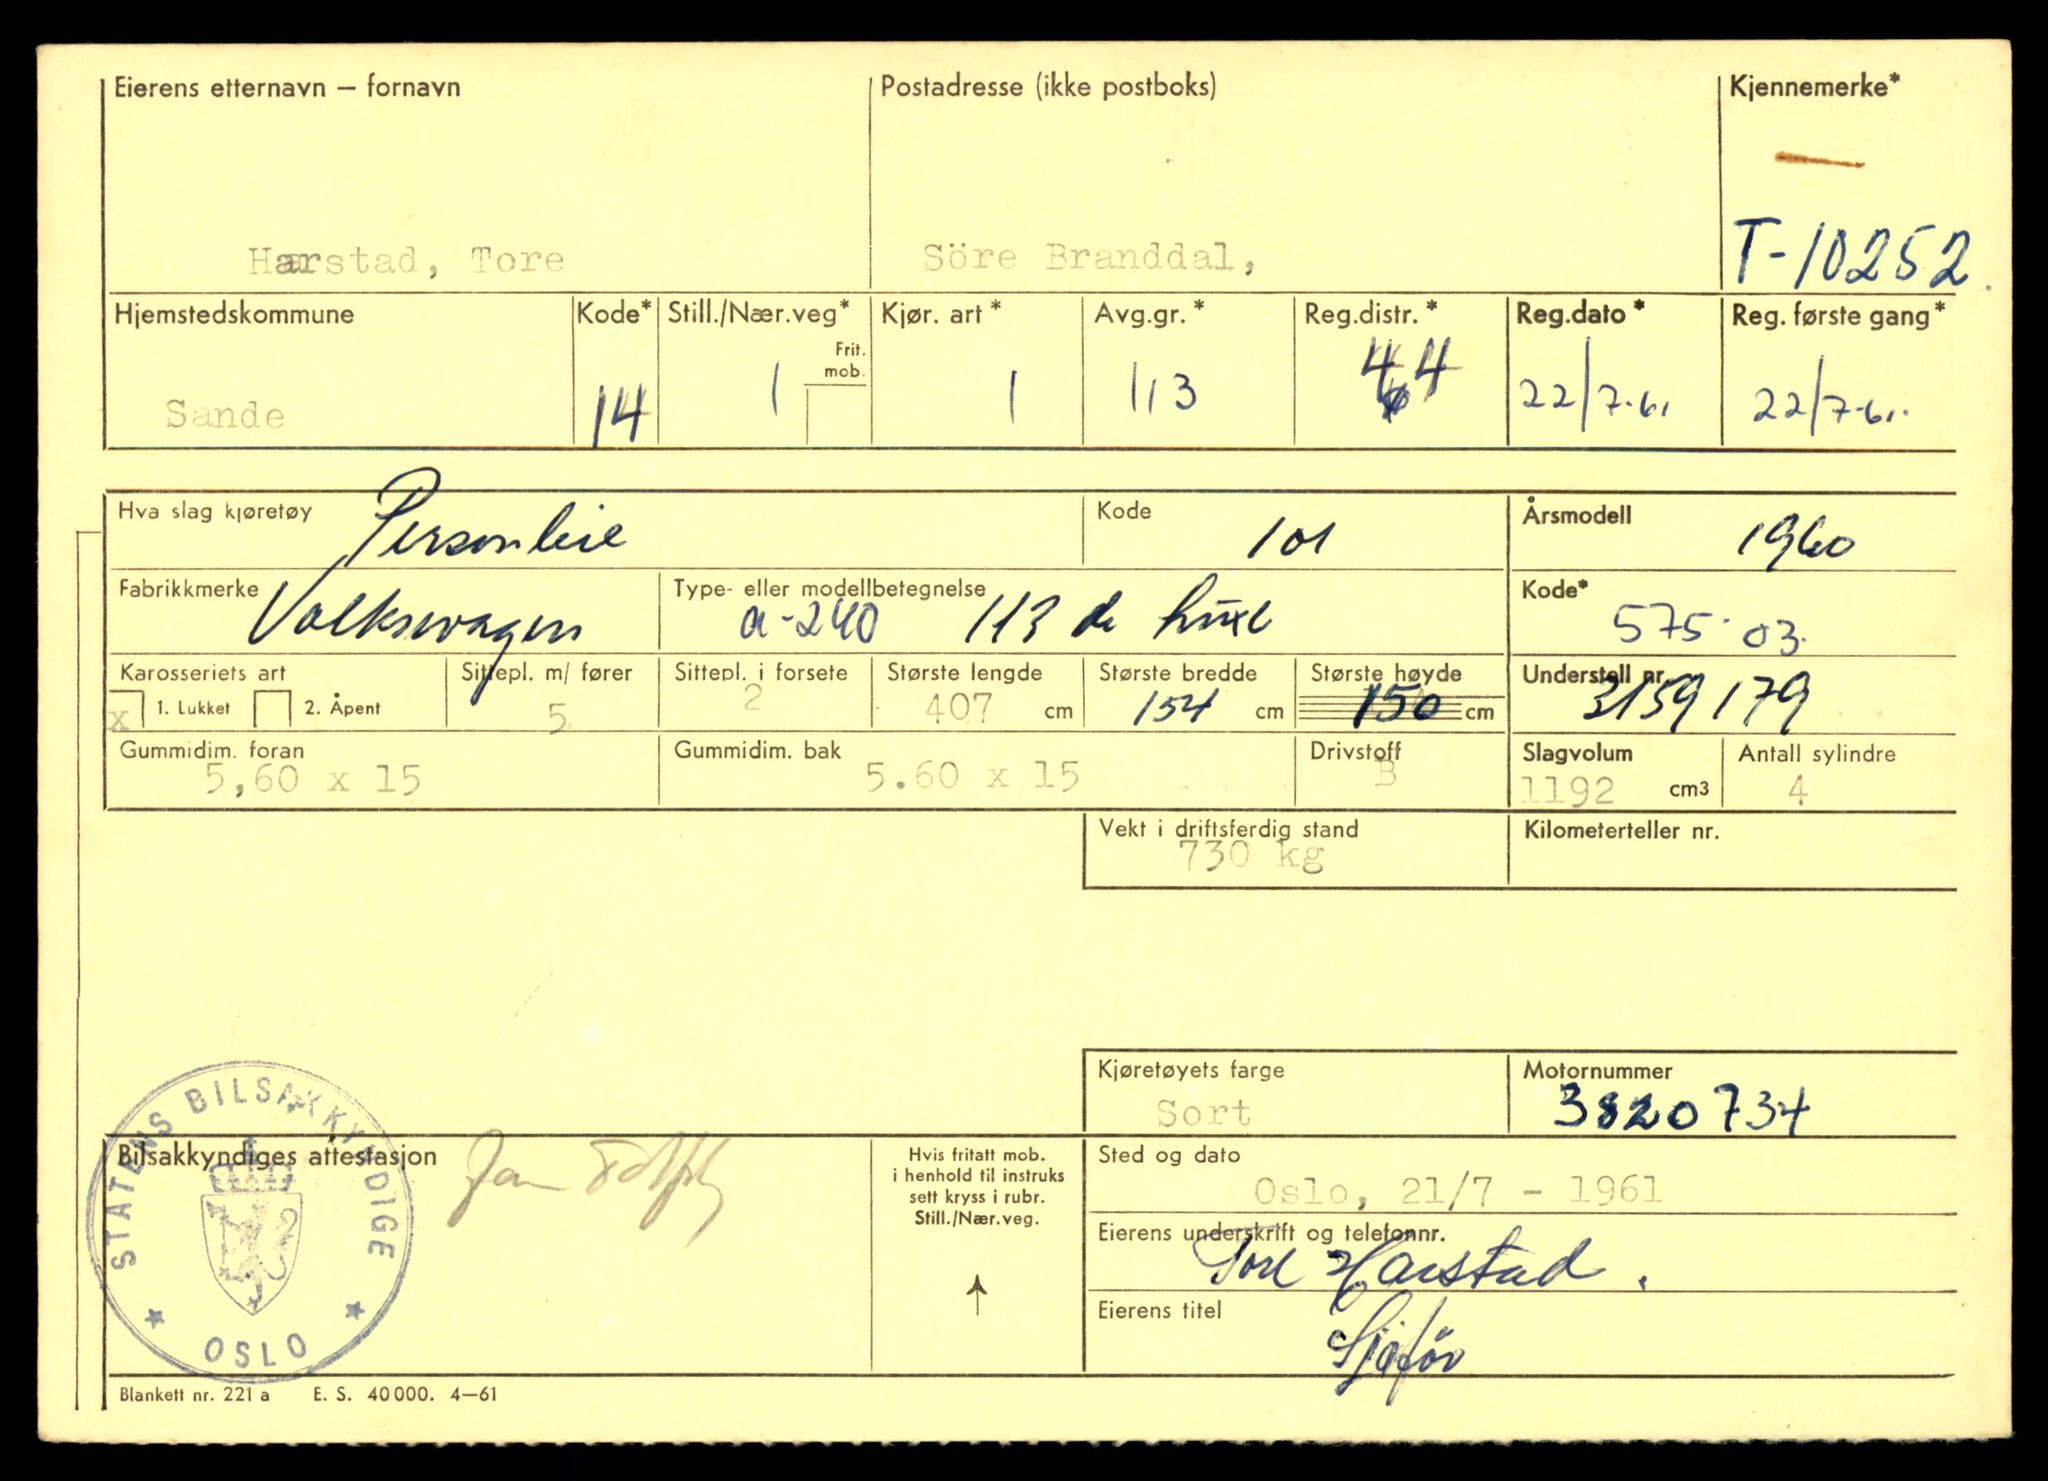 Eierens etternavn – fornavn Postadresse (ikke postboks) Kjennemerke*
Harstad, Tore Söre Branddal, T-10252
Hjemstedskommune Kode* Still./Nær.veg* Kjør. art* Avg.gr.* Reg.distr.* Reg.dato* Reg. første gang*
Frit.
mob.
Sande 14 1 1 113 44 22/7-61 22/7-61.
Hva slag kjøretøy Personbil Kode 101 Årsmodell 1960
Fabrikkmerke Volkswagen Type- eller modellbetegnelse a-240 113 de luxe Kode* 575 03.
Karosseriets art Sittepl. m/ fører Sittepl. i forsete Største lengde Største bredde Største høyde Understell nr.
x 1. Lukket 2. Åpent 5 2 407 cm 154 cm 150 cm 3159179
Gummidim. foran Gummidim. bak Drivstoff Slagvolum Antall sylindre
5,60 x 15 5.60 x 15 B 1192 cm3 4
Vekt i driftsferdig stand Kilometerteller nr.
730 kg
Kjøretøyets farge Motornummer
Sort 3820734
STATENS BILSAKKYNDIGE
OSLO
Bilsakkyndiges attestasjon
Hvis fritatt mob.
i henhold til instruks
sett kryss i rubr.
Still./Nær.veg.
Sted og dato
Oslo, 21/7 - 1961
Eierens underskrift og telefonnr.
Tore Harstad.
Eierens titel
Sjåfør
Blankett nr. 221 a E. S. 40000. 4—61